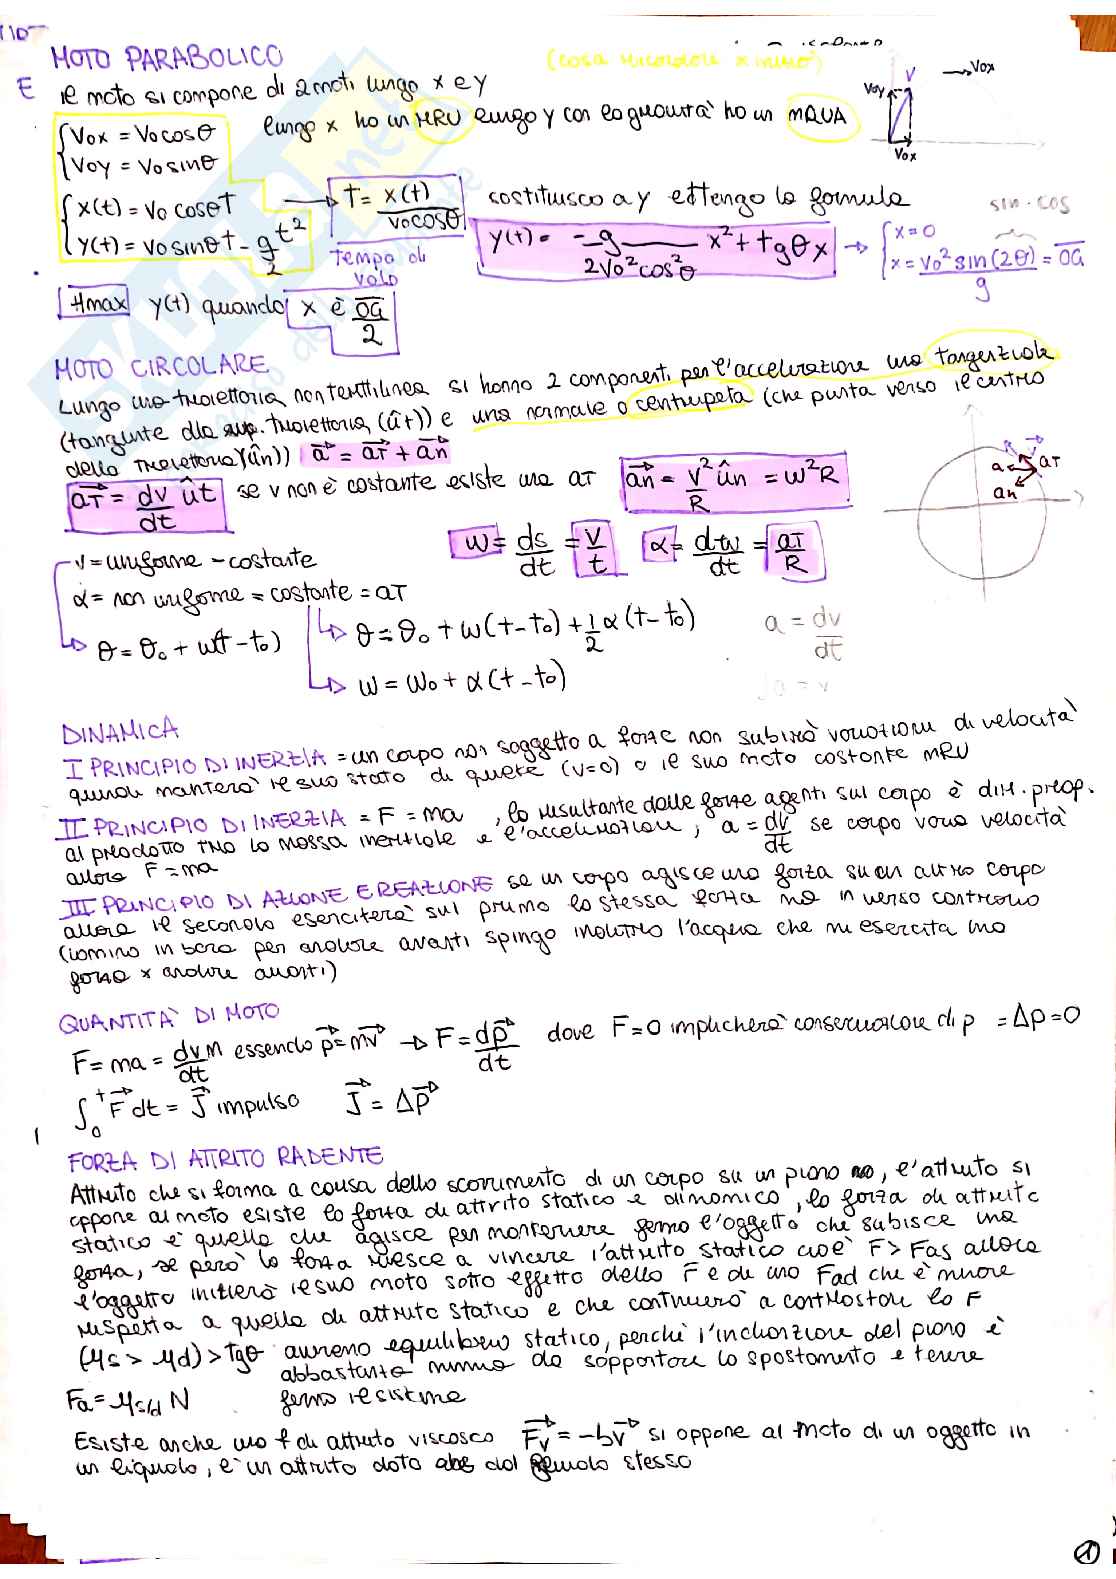 MOTO PARABOLICO
(cosa ricordare x inizio)
E il moto si compone di 2 moti lungo x e y
lungo x ho un MRU lungo y con la gravità ho un MRUA
{Vox = Vo cosθ
{Voy = Vo sinθ
{x(t) = vo cosθt
{y(t) = vo sinθt - g/2 t²
T = x(t)/vo cosθ
tempo di volo
sostituisco a y e ottengo la formula
y(t) = -g/2Vo²cos²θ x² + tgθx
sin · cos
{x = 0
{x = Vo² sin(2θ)/g = OG
Voy V Vox
Vox
Hmax y(t) quando x è OG/2
MOTO CIRCOLARE
Lungo una traiettoria non rettilinea si hanno 2 componenti per l'accelerazione una tangenziale
(tangente alla sup. traiettoria (ût)) e una normale o centripeta (che punta verso il centro
della traiettoria (ûn)) a = aT + an
aT = dv/dt ût se v non è costante esiste una aT an = v²/R ûn = w²R
a aT
an
V
w = ds/dt = v/t α = dw/dt = aT/R
v = uniforme - costante
α = non uniforme = costante = aT
θ = θo + w(t - to)
θ = θo + w(t - to) + 1/2 α(t - to)
w = wo + α(t - to)
a = dv/dt
∫a = v
DINAMICA
I PRINCIPIO DI INERZIA = un corpo non soggetto a forze non subirà variazioni di velocità
quindi manterrà il suo stato di quiete (v=0) o il suo moto costante MRU
II PRINCIPIO DI INERZIA = F = ma, la risultante delle forze agenti sul corpo è dir. prop.
al prodotto tra la massa inerziale e l'accelerazione, a = dv/dt se corpo varia velocità
allora F = ma
III PRINCIPIO DI AZIONE E REAZIONE se un corpo agisce una forza su un altro corpo
allora il secondo eserciterà sul primo la stessa forza ma in verso contrario
(uomino in barca per andare avanti spingo indietro l'acqua che mi esercita una
forza x andare avanti)
QUANTITÀ DI MOTO
F = ma = dv/dt m essendo p = mv → F = dp/dt dove F = 0 implicherà conservazione di p = Δp = 0
∫₀ᵗ F dt = J impulso J = Δp
FORZA DI ATTRITO RADENTE
Attrito che si forma a causa dello scorrimento di un corpo su un piano, l'attrito si
oppone al moto esiste la forza di attrito statico e dinamico, la forza di attrito
statico è quella che agisce per mantenere fermo l'oggetto che subisce una
forza, se però la forza riesce a vincere l'attrito statico cioè F > Fas allora
l'oggetto inizierà il suo moto sotto effetto della F e di una Fad che è minore
rispetto a quella di attrito statico e che continuerà a contrastare la F
(μs > μd) > tgθ avremo equilibrio statico, perché l'inclinazione del piano è
abbastanza minima da sopportare lo spostamento e tenere
Fa = μs/d N fermo il sistema
Esiste anche una f di attrito viscoso Fv = -bv si oppone al moto di un oggetto in
un liquido, è un attrito dato dal fluido stesso
1